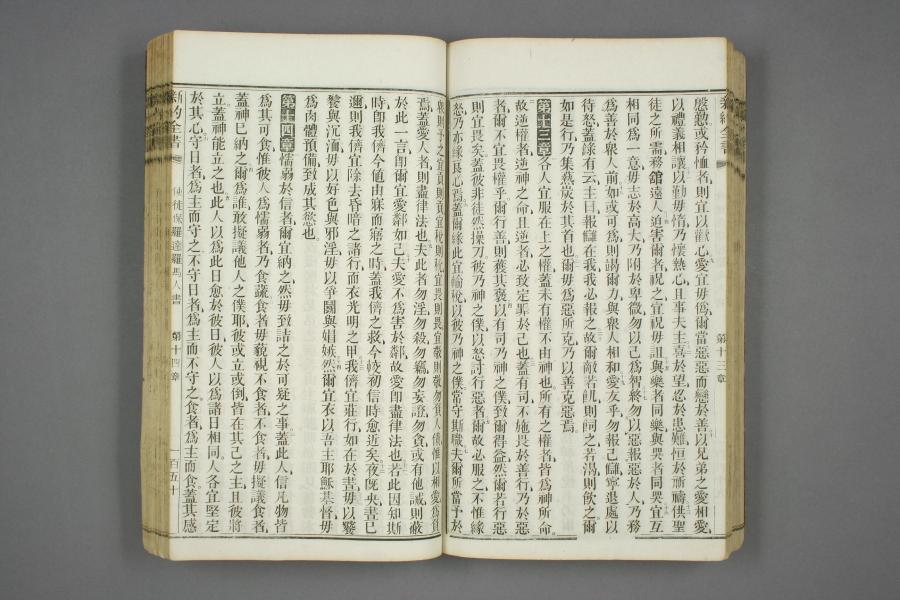 慇懃或矜恤者則宜以歡心愛宜毋僞爾當惡惡而戀於善以兄弟之愛相愛
以禮義相讓以勤毋惰乃懷熱心且事夫主喜於望忍於患難恒於祈禱供聖
徒之所需務舘遠人迫害爾者祝之宜祝毋詛與樂者同樂與哭者同哭宜互
相同爲一意毋志於高大乃附於卑微勿以己爲智終勿以惡報惡於人乃務
爲善於衆人前如或可爲則竭爾力與衆人相和愛友乎勿報己讎寧退處以
待怒蓋錄有云主曰報讎在我我必報之故爾敵若飢則飼之若渴則飲之爾
如是行乃集熱炭於其首也爾毋爲惡所克乃以善克惡焉
第十三章各人宜服在上之權蓋未有權不由神也所有之權者皆爲神所命
故逆權者逆神之命且逆者必致定罪於己也蓋有司不施畏於善行乃於惡
者爾不宜畏權乎爾行善則獲其褒以有司乃神之僕致爾得益然爾若行惡
則宜畏矣蓋彼非徒然操刀彼乃神之僕以怒討行惡者爾故必服之不惟緣
怒乃亦緣良心焉蓋爾緣此宜輸稅以彼乃神之僕當守斯職夫爾所當予於
衆則予之宜貢則貢宜稅則稅宜畏則畏宜敬則敬勿負人債惟以相愛爲負
焉蓋愛人者則盡律法也夫此者勿淫勿殺勿竊勿妄證勿貪或有他誡則蔽
於此一言卽爾宜愛鄰如己夫愛不爲害於鄰故愛卽盡律法也若此因知斯
時卽我儕今值由寐而寤之時蓋我儕之救今較初信時愈近矣夜旣央晝已
邇則我儕宜除去昏暗之諸行而衣光明之甲我儕宜莊行如在於晝毋以饕
餮與沉湎毋以好色與邪淫毋以爭鬪與娼嫉然爾宜衣以吾主耶穌基督毋
爲肉體預備致成其慾也
第十四章懦弱於信者爾宜納之然毋致詰之於可疑之事蓋此人信凡物皆
爲其可食惟彼人爲懦弱者乃食蔬食者毋藐視不食者不食者毋擬議食者
蓋神已納之爾爲誰敢擬議他人之僕耶彼或立或倒皆在其己之主且彼將
立蓋神能立之也此人以爲此日愈於彼日彼人以爲諸日相同人各宜堅定
於其心守日者爲主而守之不守日者爲主而不守之食者爲主而食蓋其感
新約全書
使徒保羅達羅馬人書
第十四章
一百五十
第十三章